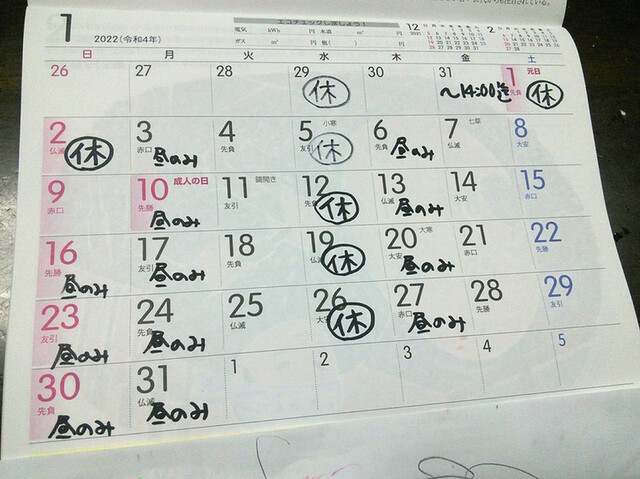 エコチェックしましょう!
1 2022(令和4年)
電気 kW 円 水道 m³ 円
ガス m³ 円 他( ) 円
12
2
日 月 火 水 木 金 土
26 27 28 29 30 31 1 元日
休 〜14:00迄 先負 休
2 3 4 5 小寒 6 7 七草 8
仏滅 休 赤口 昼のみ 先負 友引 休 先負 昼のみ 仏滅 大安
9 10 成人の日 11 鏡開き 12 13 14 15
赤口 先勝 友引 休 仏滅 大安 赤口
昼のみ 昼のみ
16 17 18 19 20 大寒 21 22
先勝 友引 先負 休 大安 赤口 先勝
昼のみ 昼のみ 昼のみ
23 24 25 26 27 28 29
友引 先負 仏滅 大安 休 赤口 先勝 友引
昼のみ 昼のみ 昼のみ
30 31 1 2 3 4 5
先負 仏滅
昼のみ 昼のみ